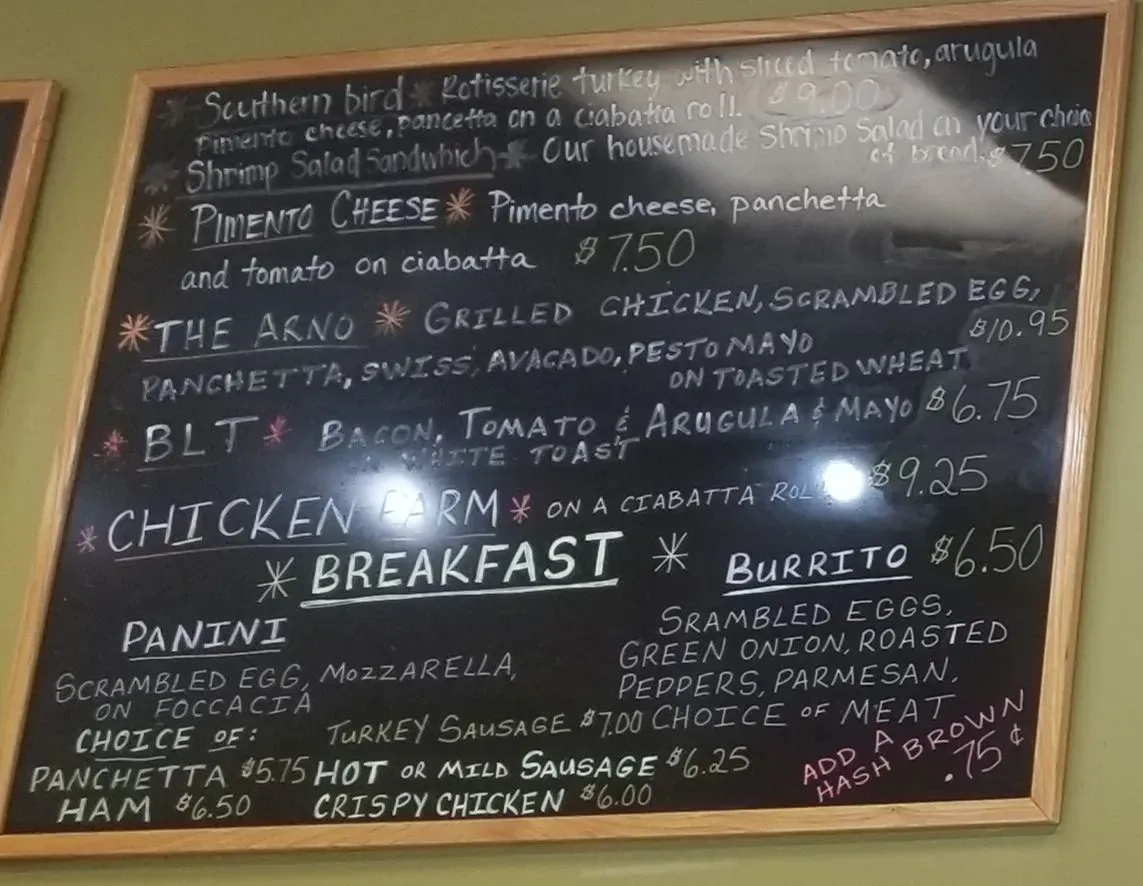 * Southern bird * Rotisserie turkey with sliced tomato, arugula
pimento cheese, pancetta on a ciabatta roll. $9.00
* Shrimp Salad Sandwhich * Our housemade Shrimp Salad on your choice
of bread. $7.50
* PIMENTO CHEESE * Pimento cheese, panchetta
and tomato on ciabatta $7.50
* THE ARNO * GRILLED CHICKEN, SCRAMBLED EGG,
PANCHETTA, SWISS, AVACADO, PESTO MAYO $10.95
ON TOASTED WHEAT
* BLT * BACON, TOMATO & ARUGULA & MAYO $6.75
WHITE TOAST
* CHICKEN FARM * ON A CIABATTA ROLL $9.25
* BREAKFAST *
BURRITO $6.50
SRAMBLED EGGS,
GREEN ONION, ROASTED
PEPPERS, PARMESAN,
CHOICE OF MEAT
PANINI
SCRAMBLED EGG, MOZZARELLA,
ON FOCCACIA
CHOICE OF: TURKEY SAUSAGE $7.00
PANCHETTA $5.75 HOT OR MILD SAUSAGE $6.25
HAM $6.50 CRISPY CHICKEN $6.00
ADD A
HASH BROWN
.75¢